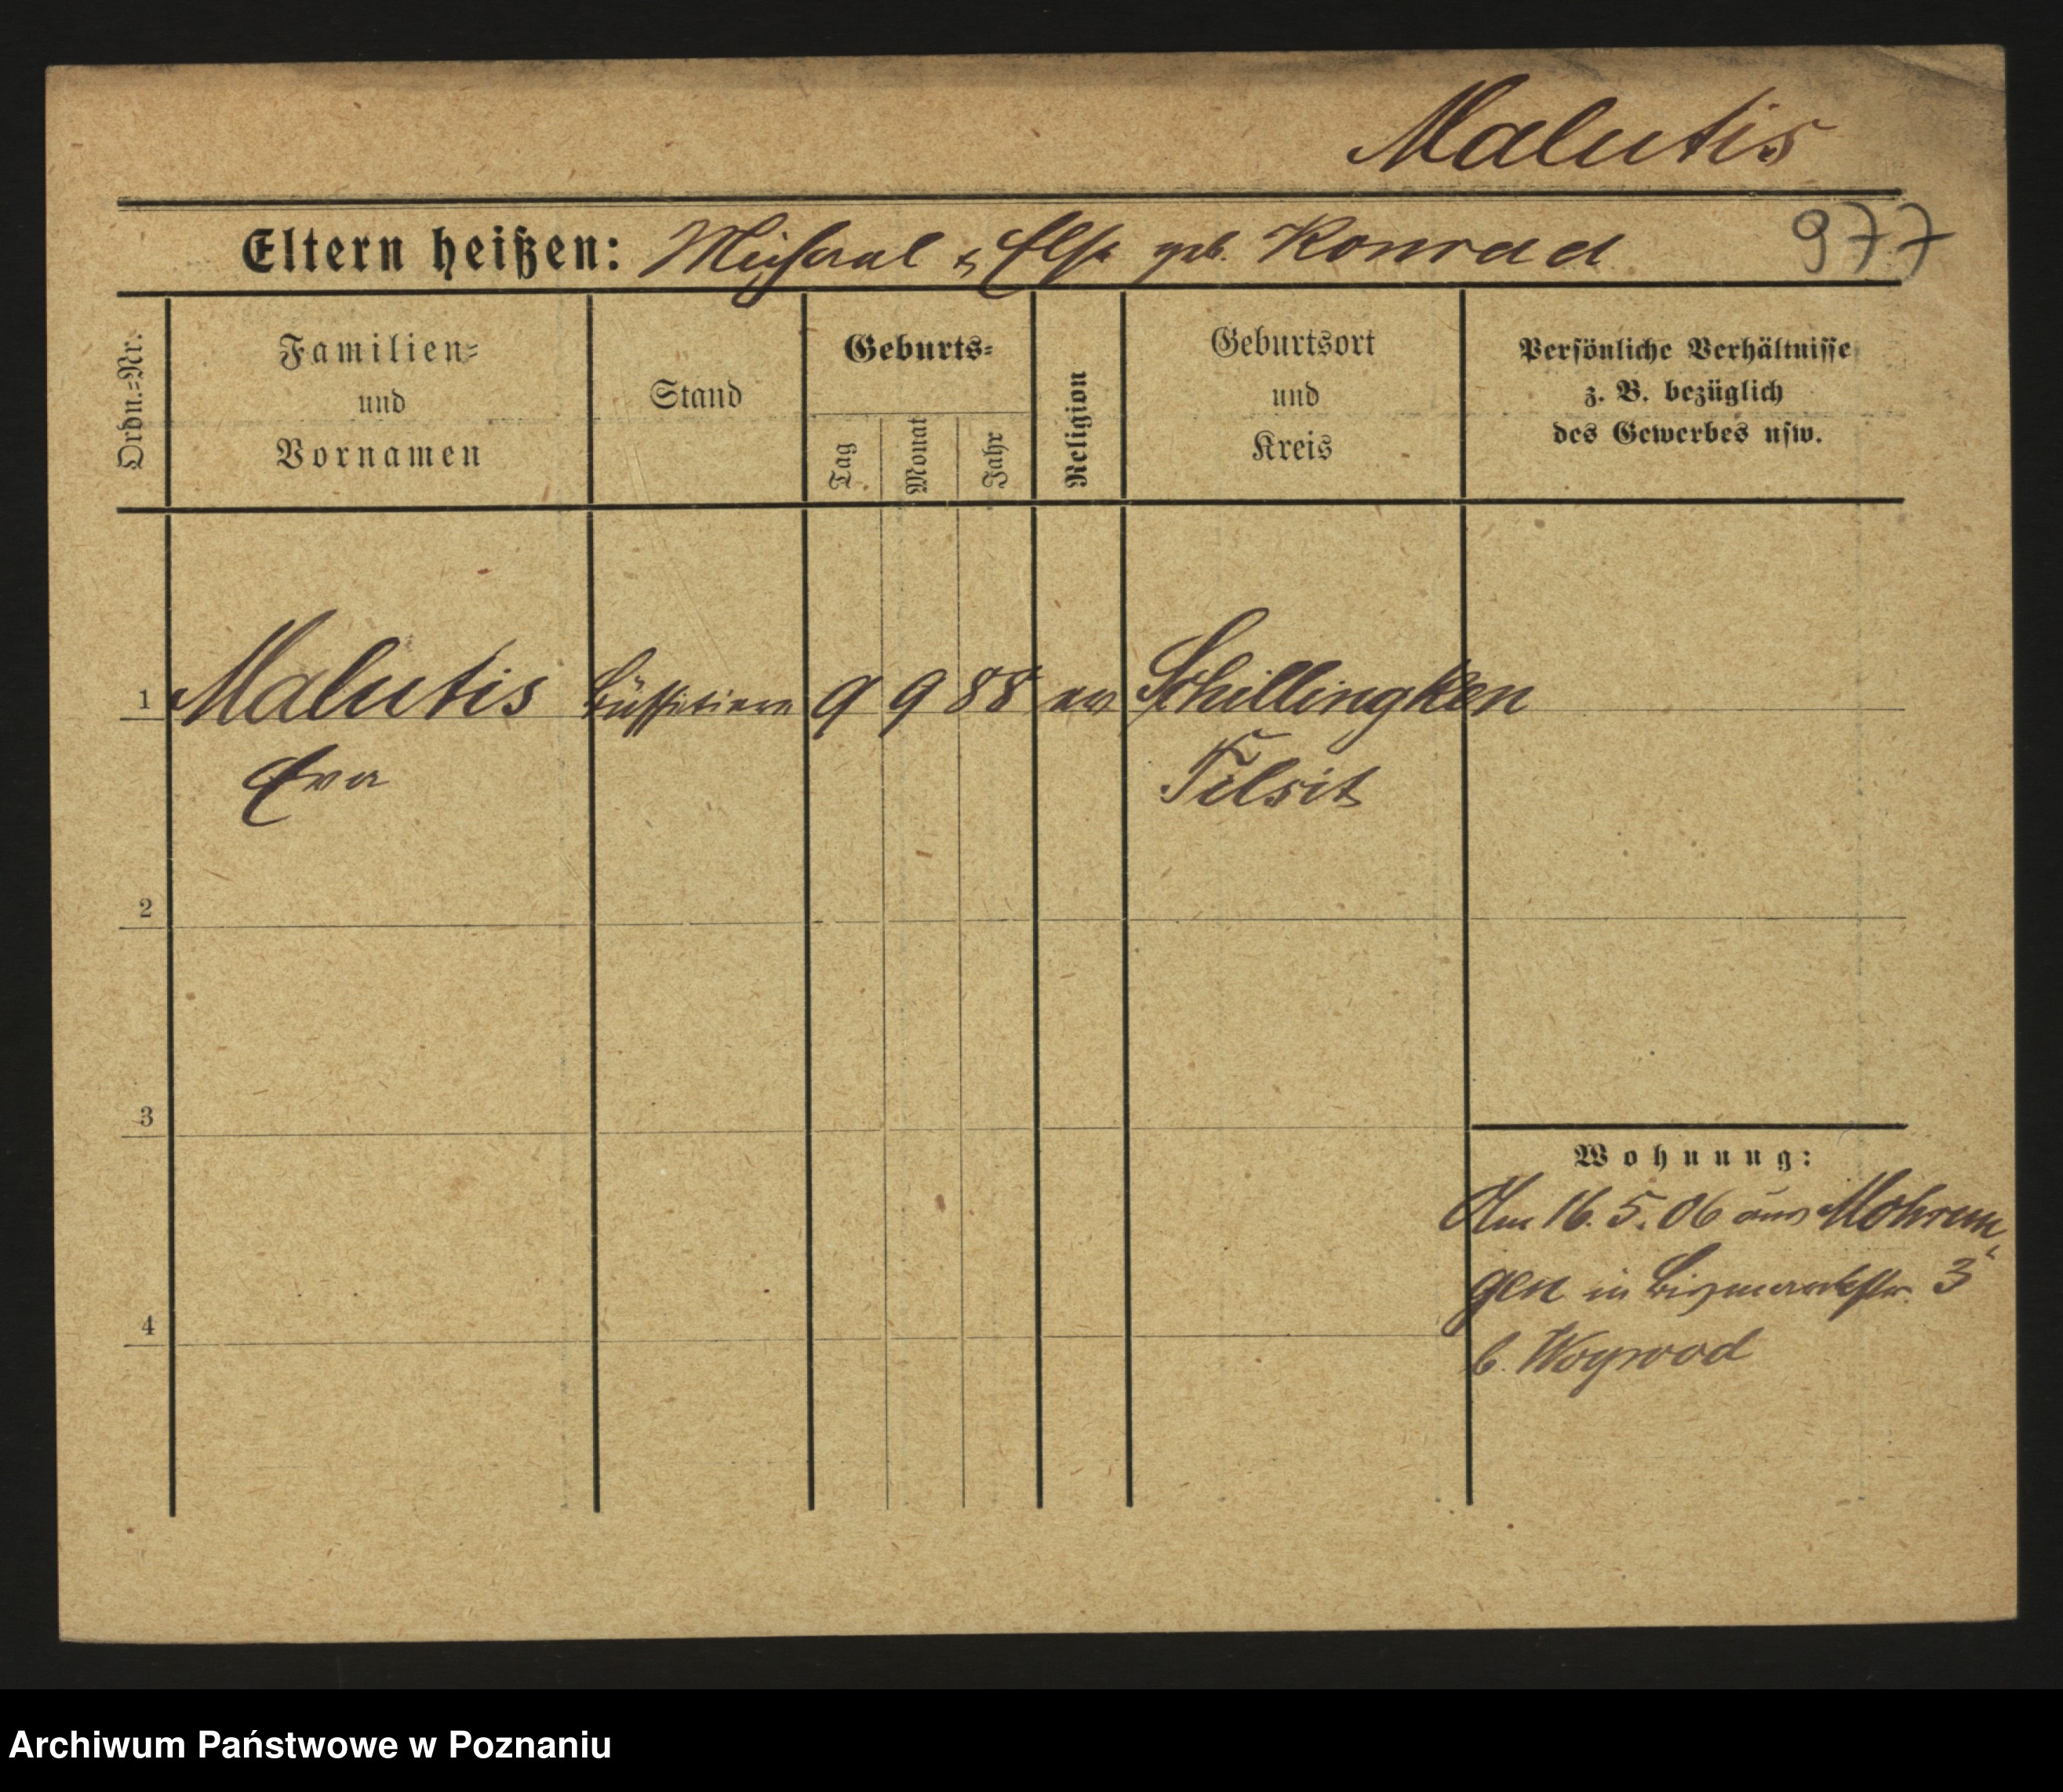 Malutis
Eltern heißen: Michael & Else geb. Konrad
977
Ordn.=Nr.
Familien=
und
Vornamen
Stand
Geburts=
Tag
Monat
Jahr
Religion
Geburtsort
und
Kreis
Persönliche Verhältnisse
z. B. bezüglich
des Gewerbes usw.
1 Malutis Büffetiere 9 9 88 ev Schillingken
Eva Tilsit
2
3
4
Wohnung:
Am 16.5.06 aus Mohrun
gen in Bismarckstr. 3
b. Woywod
Archiwum Państwowe w Poznaniu